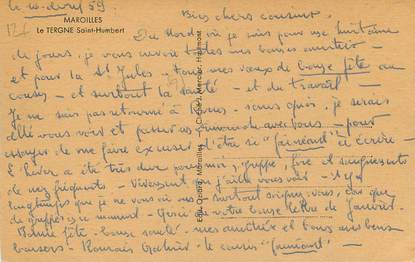 le 10 avril 59.
MAROILLES
Le TERGNE Saint-Humbert
Bien chers cousins.
Du Nord où je suis pour une huitaine
de jours, je vous envoie toutes mes bonnes amitiés -
et pour la St Jules - tous mes voeux de bonne fête au
cousin - et surtout la santé - et du travail -
Je ne suis pas retourné à - sans quoi, je serais
allé vous voir et passer un avec vous - pour
essayer de me faire excuser d'être si "fainéant" à écrire -
L'hiver a été très dur pour moi, grippe, foie et saignements
de nez fréquents - Vivement que j'aille vous voir - Il y a
longtemps que je ne vous ai vus surtout soignez-vous, car que
de grippes en ce moment - Merci de votre bonne lettre de Janvier.
Bonne fête - bonne santé - mes amitiés et tous mes bons
baisers - le cousin "fainéant" -
Mercier, Hautmont